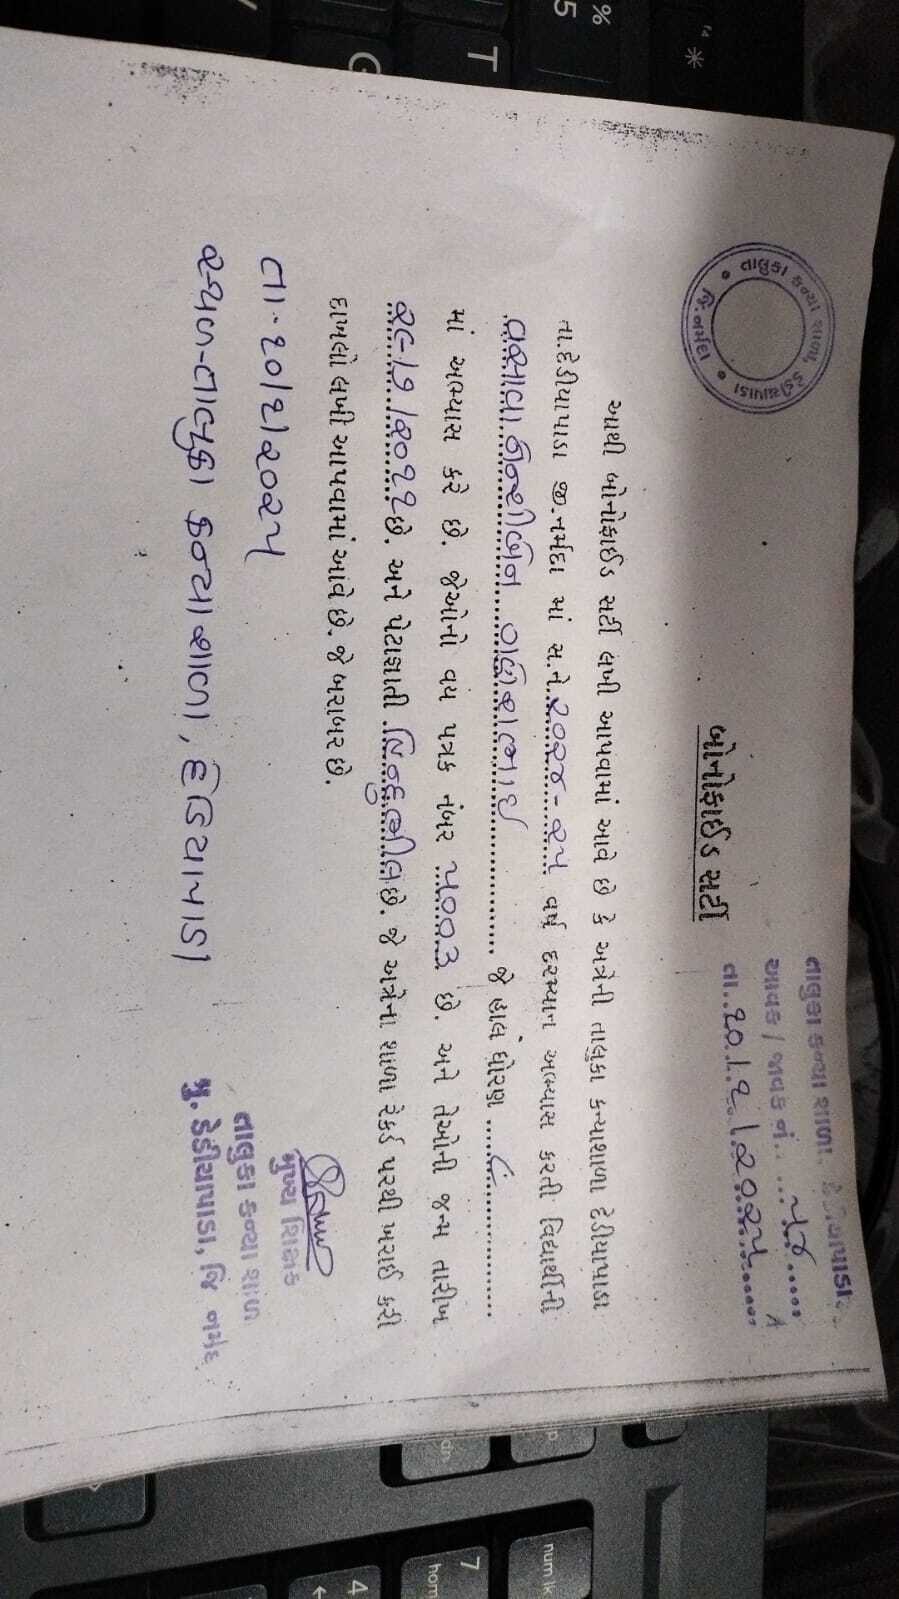 તાલુકા કન્યા શાળા, દેડીયાપાડા
જિ.નર્મદા
તાલુકા કન્યા શાળા.
આવક / જાવક નં. ... ૫૪ .....
તા..૨૦.૧.૨.૧૨૦૨૫......
બોનોફાઈડ સર્ટી
આથી બોનોફાઈડ સર્ટી લખી આપવામાં આવે છે કે અત્રેની તાલુકા કન્યાશાળા દેડીયાપાડા
તા.દેડીયાપાડા જી.નર્મદા માં સ.ને.૨૦૨૪-૨૫ વર્ષ દરમ્યાન અભ્યાસ કરતી વિદ્યાર્થીની
વસાવા ..... જે હાલ ધોરણ ...........
માં અભ્યાસ કરે છે. જેઓનો વય પત્રક નંબર ૫૦૦૩ છે. અને તેઓની જન્મ તારીખ
છે. અને પેટાજ્ઞાતી હિન્દુભીલ છે. જે અત્રેના શાળા રેકર્ડ પરથી ખરાઈ કરી
દાખલો લખી આપવામાં આવે છે. જે બરાબર છે.
તા. ૨૦/૨/૨૦૨૫
સ્થળ-તાલુકા કન્યાશાળા, દેડિયાપાડા
મુખ્ય શિક્ષક
તાલુકા કન્યા શાળા
મુ. દેડીયાપાડા, જિ નર્મદા